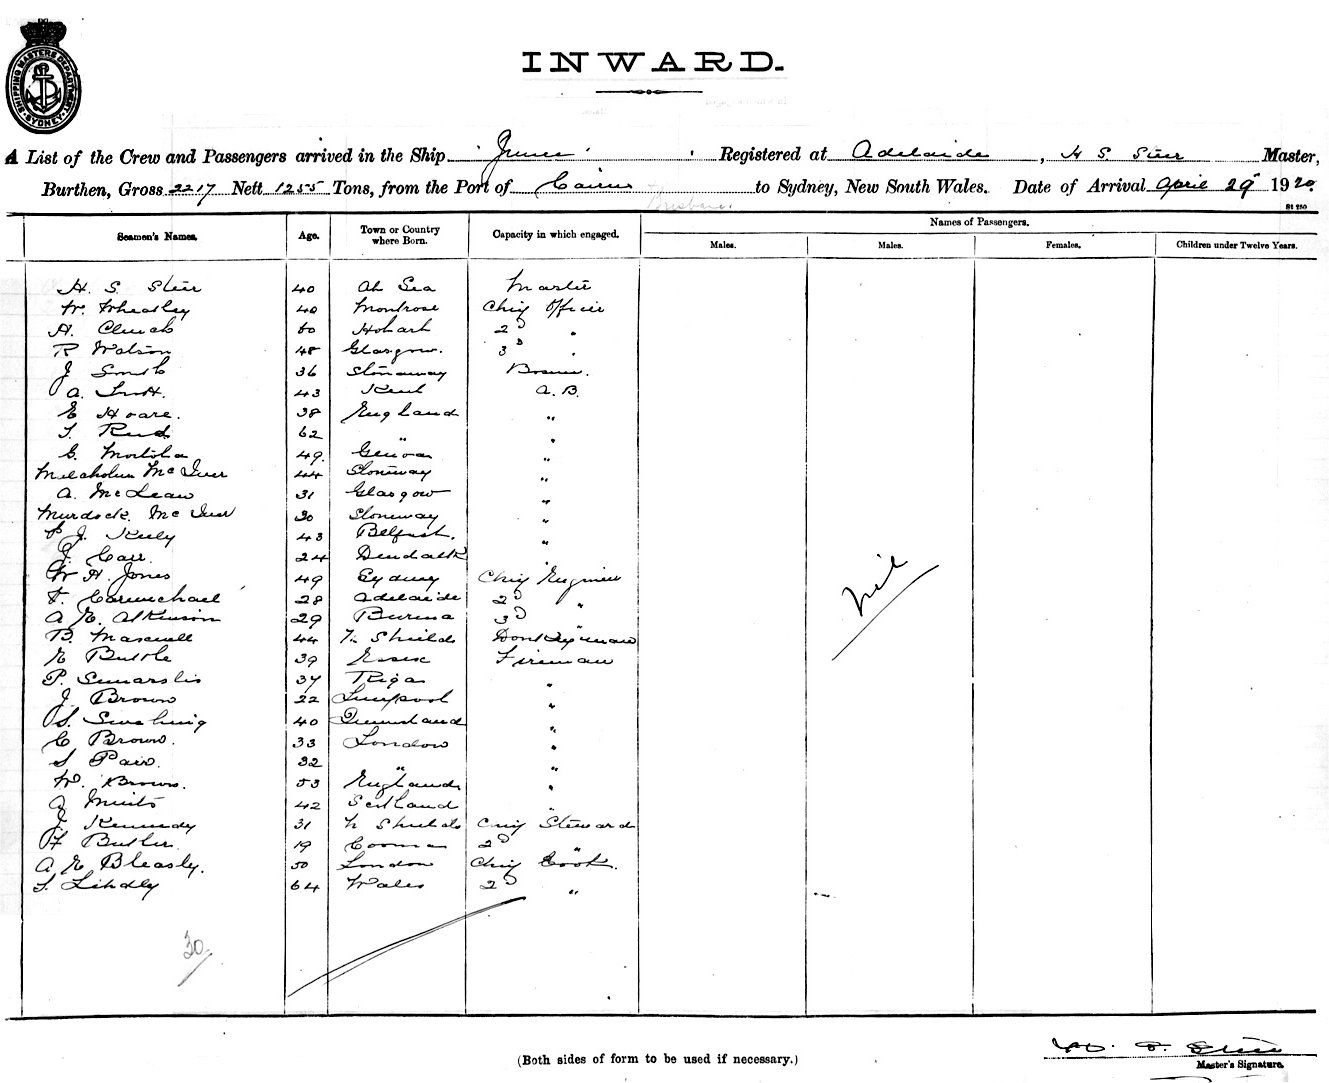 SHIPPING MASTERS DEPARTMENT SYDNEY
INWARD.
A List of the Crew and Passengers arrived in the Ship Registered at Adelaide, H S. Master,
Burthen, Gross 2217 Nett 1255 Tons, from the Port of Cairns to Sydney, New South Wales. Date of Arrival April 29 1920.
Brisbane.
Names of Passengers.
Seamen's Names. Age. Town or Country where Born. Capacity in which engaged. Males. Males. Females. Children under Twelve Years.
H. S. 40 At Sea Master
W. Wheatley 40 Montrose Chief Officer
H. 60 Hobart 2D "
R Watson 48 Glasgow. 3D "
J Smith 36 Stornaway Bosun.
A. 43 Kent A.B.
E Hoare. 38 England "
T. Reid 62 " "
49. Genoa "
Mc 44 "
A. McLean 31 Glasgow "
Murdock Mc 30 "
P J. 43 Belfast. "
J Carr. 24 Dundalk "
W H. Jones 49 Sydney Chief Engineer
F. Carmichael 28 Adelaide 2D "
A E. Atkinson 29 Burma 3D "
B. Maxwell 44 N Shields Donkeyman
E Buttle 39 Essex Fireman
P. 37 Riga "
J. Brown 22 Liverpool "
S. 40 Queensland "
C Brown. 33 London "
S 32 " "
W. Brown. 53 England "
42 Scotland "
J. Kennedy 31 N Shields Chief Steward
F Butler. 19 Cooma 2D "
A E Bleasly. 50 London Chief Cook.
64 Wales 2D "
nil
30
(Both sides of form to be used if necessary.)
Master's Signature.